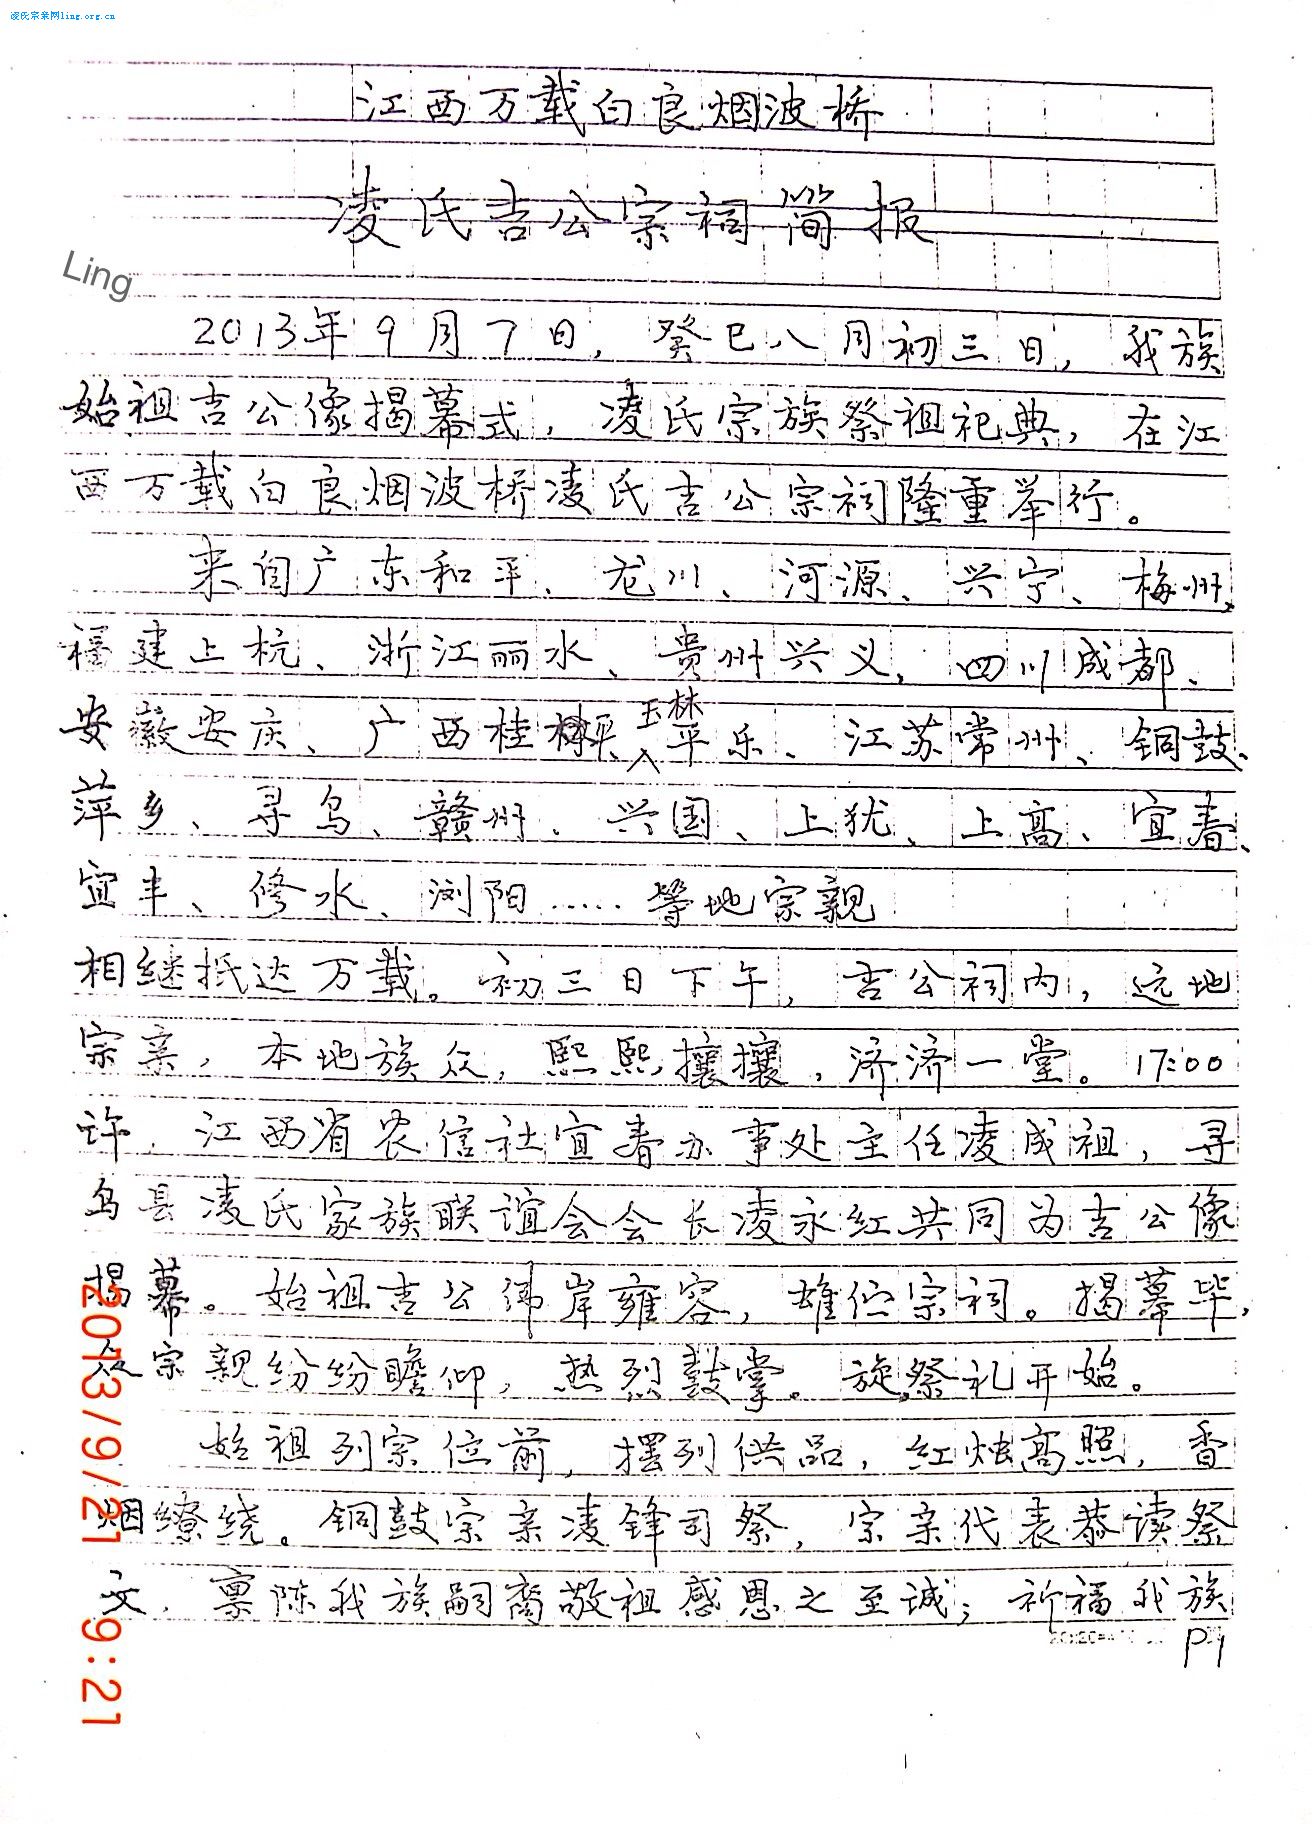 凌氏宗亲网ling.org.cn
江西万载白良烟波桥
凌氏吉公宗祠简报
Ling
2013年9月7日，癸巳八月初三日，我族
始祖吉公像揭幕式，凌氏宗族祭祖祀典，在江
西万载白良烟波桥凌氏吉公宗祠隆重举行。
来自广东和平、龙川、河源、兴宁、梅州、
福建上杭、浙江丽水、贵州兴义，四川成都、
安徽安庆、广西桂林玉林平乐、江苏常州、铜鼓、
萍乡、寻乌、赣州、兴国、上犹、上高、宜春、
宜丰、修水、浏阳……等地宗親
相继抵达万载。初三日下午，吉公祠内，远地
宗亲，本地族众，熙熙攘攘，济济一堂。17:00
许，江西省农信社宜春办事处主任凌成祖，寻
乌县凌氏家族联谊会会长凌永红共同为吉公像
揭幕。始祖吉公伟岸雍容，雄伫宗祠。揭幕毕，
众宗親纷纷瞻仰，热烈鼓掌。旋，祭礼开始。
始祖列宗位前，摆列供品，红烛高照，香
烟缭绕。铜鼓宗亲凌锋司祭，宗亲代表恭读祭
文，禀陈我族嗣裔敬祖感恩之至诚；祈福我族
P1
2013/9/21 9:21